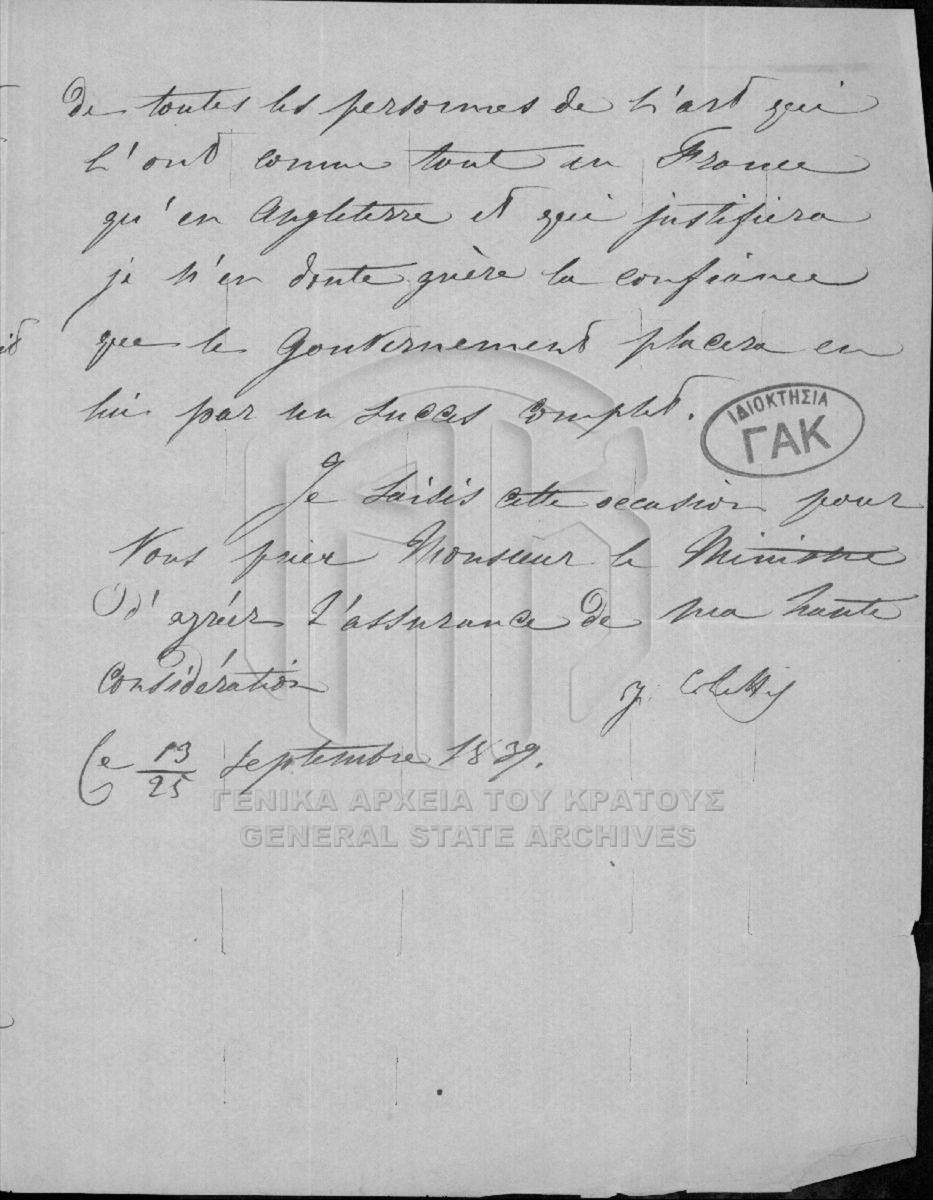 de toutes les personnes de l'art qui
l'ont connu tant en France
qu'en Angleterre et qui justifiera
je n'en doute guère la confiance
que le Gouvernement placera en
lui par un succès complet.
ΙΔΙΟΚΤΗΣΙΑ
ΓΑΚ
Je saisis cette occasion pour
Vous prier Monsieur le Ministre
d'agréer l'assurance de ma haute
considération
J. Colettis
Le 13/25 Septembre 1839.
ΓΕΝΙΚΑ ΑΡΧΕΙΑ ΤΟΥ ΚΡΑΤΟΥΣ
GENERAL STATE ARCHIVES